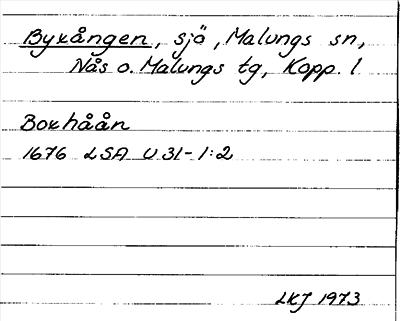 Byxången, sjö, Malungs sn,
Nås o. Malungs tg, Kopp. l
Boxhåån
1676 LSA U 31-1:2
LKJ 1973